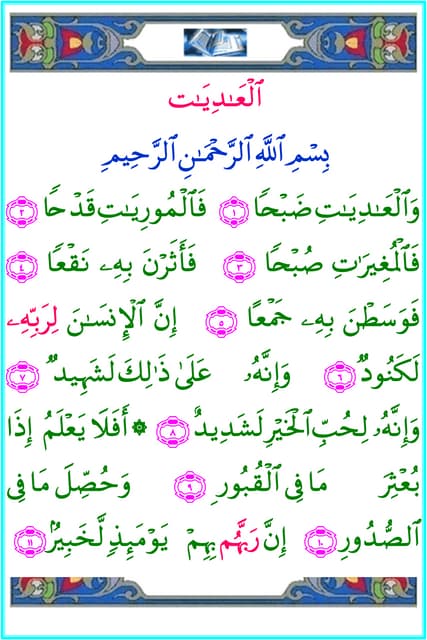 ٱلْعَـٰدِيَـٰت
بِسْمِ ٱللَّهِ ٱلرَّحْمَـٰنِ ٱلرَّحِيمِ
وَٱلْعَـٰدِيَـٰتِ ضَبْحًا ١ فَٱلْمُورِيَـٰتِ قَدْحًا ٢
فَٱلْمُغِيرَٰتِ صُبْحًا ٣ فَأَثَرْنَ بِهِۦ نَقْعًا ٤
فَوَسَطْنَ بِهِۦ جَمْعًا ٥ إِنَّ ٱلْإِنسَـٰنَ لِرَبِّهِۦ
لَكَنُودٌ ٦ وَإِنَّهُۥ عَلَىٰ ذَٰلِكَ لَشَهِيدٌ ٧
وَإِنَّهُۥ لِحُبِّ ٱلْخَيْرِ لَشَدِيدٌ ٨ ۞ أَفَلَا يَعْلَمُ إِذَا
بُعْثِرَ مَا فِى ٱلْقُبُورِ ٩ وَحُصِّلَ مَا فِى
ٱلصُّدُورِ ١٠ إِنَّ رَبَّهُم بِهِمْ يَوْمَئِذٍ لَّخَبِيرٌۢ ١١